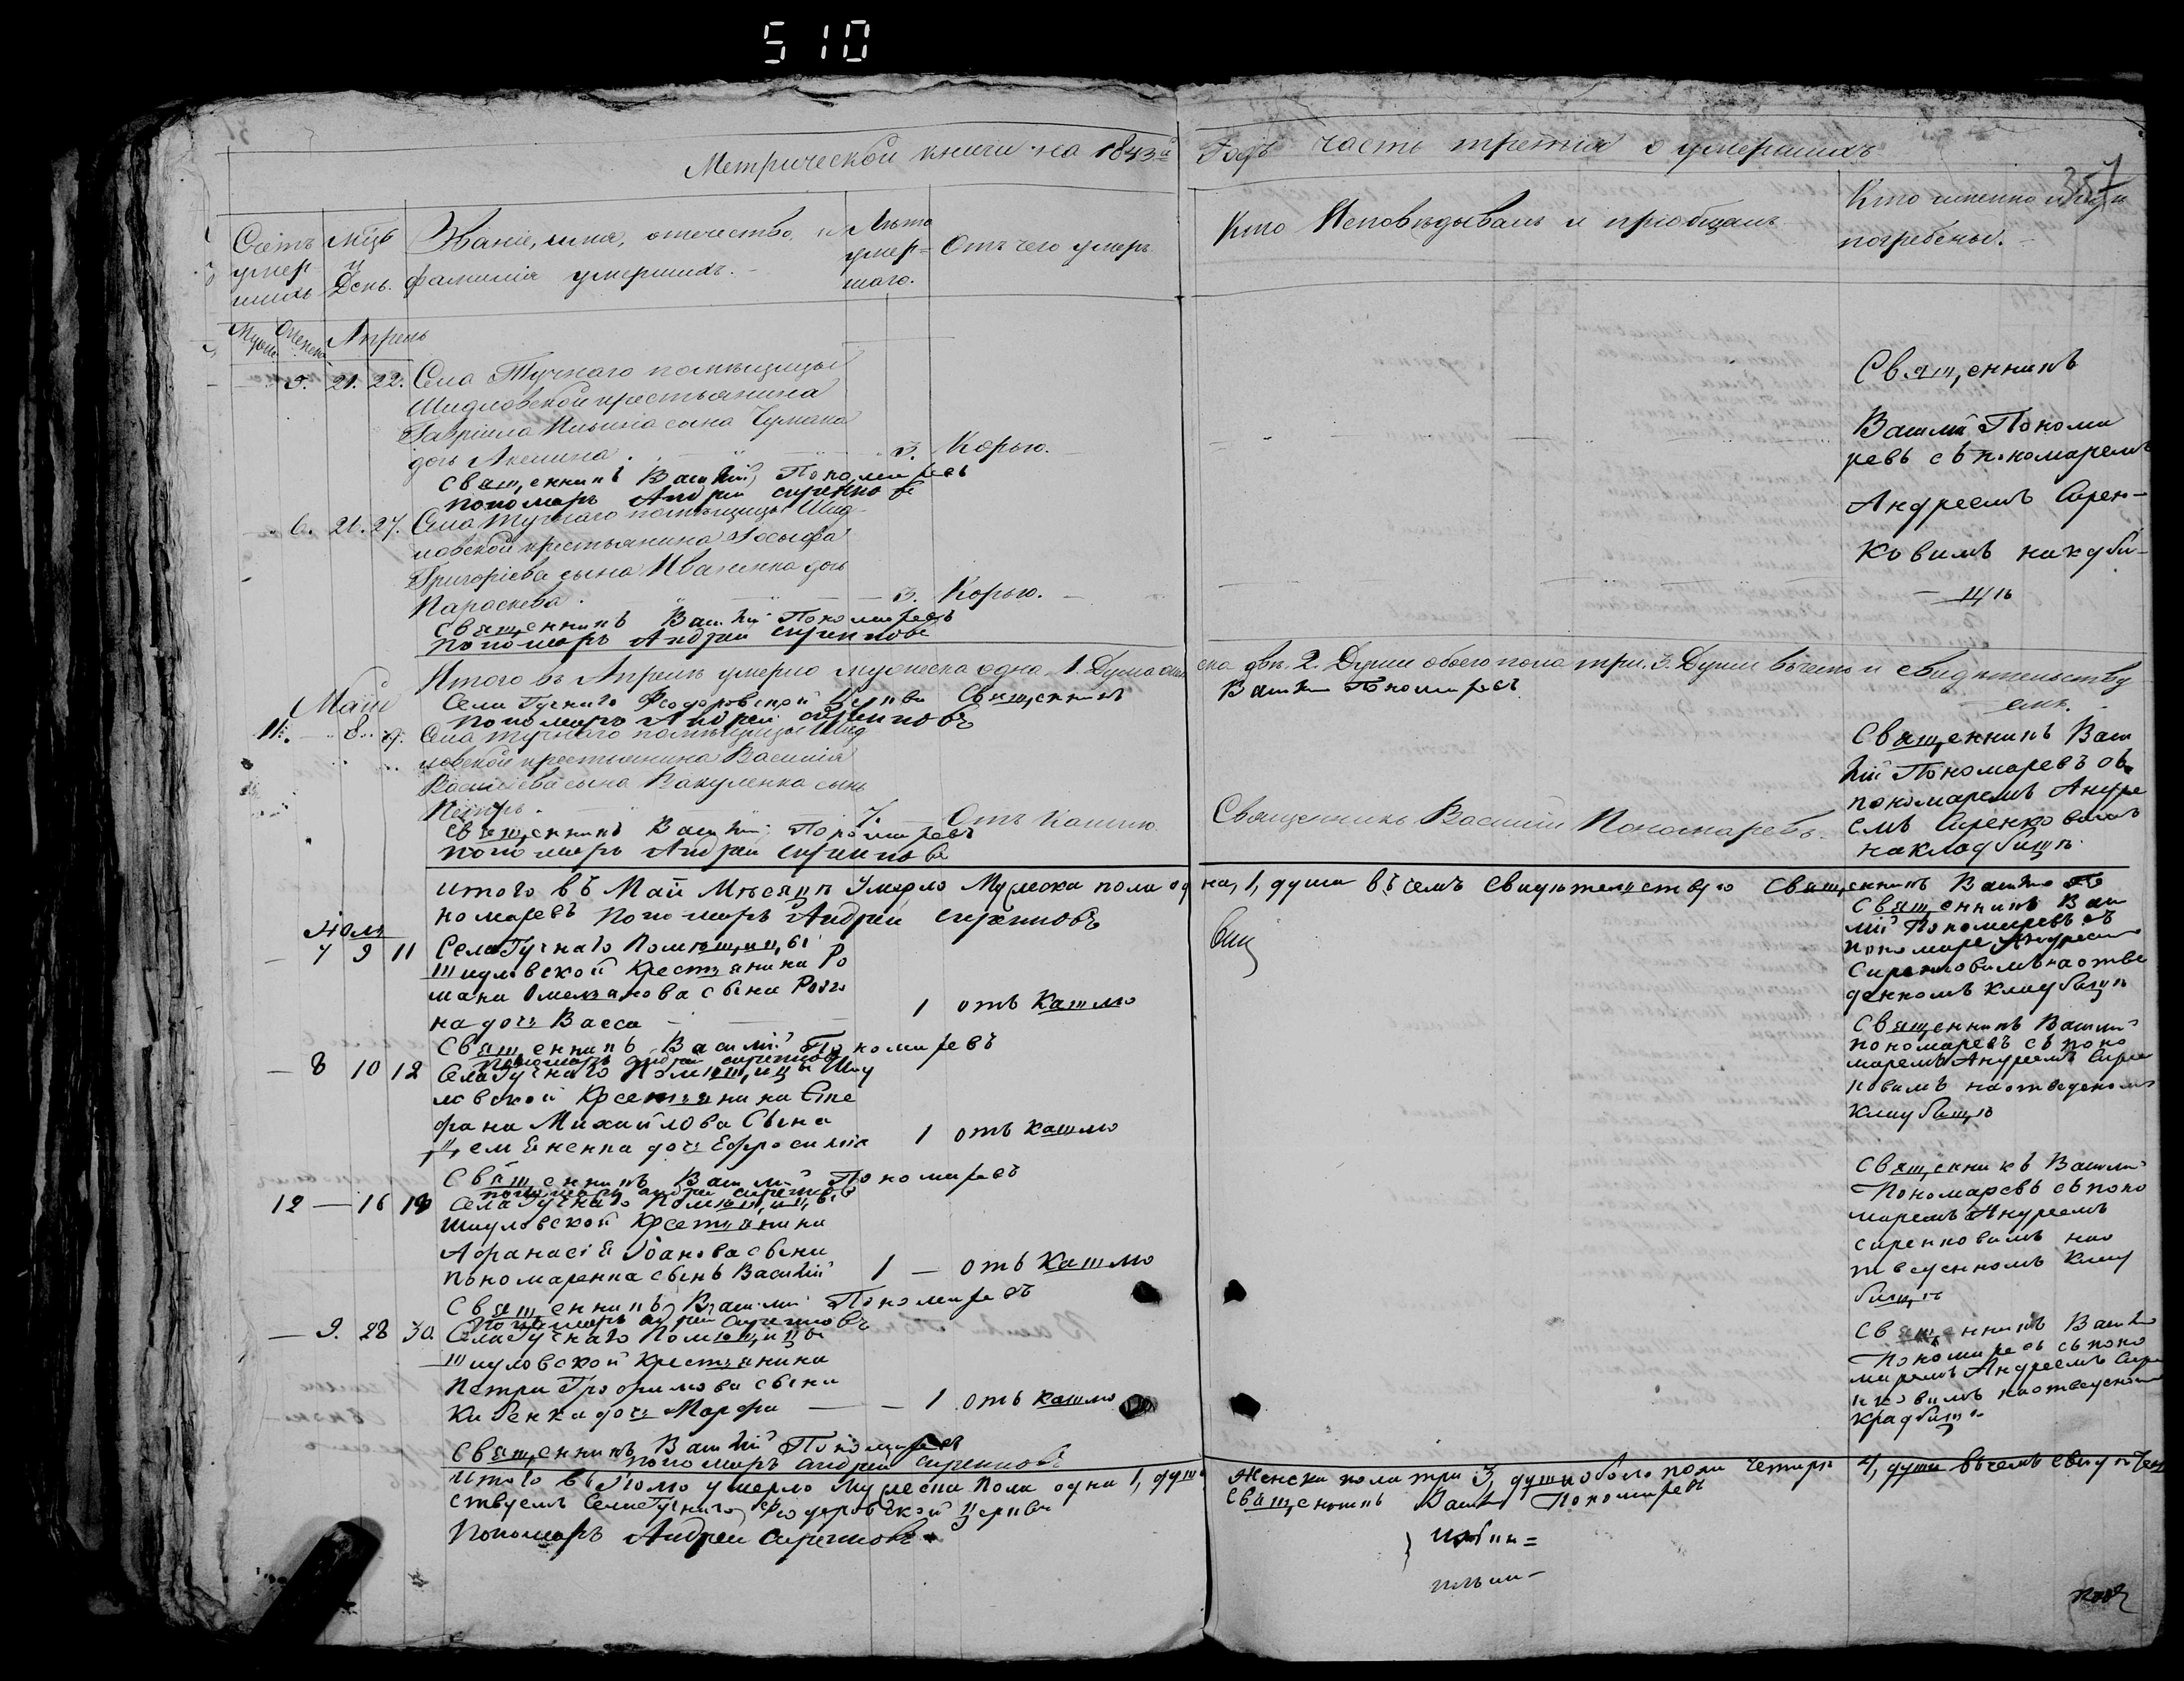 510
Метрической книги на 1843й Годъ часть третія о умершихъ
357
Счетъ умер-шихъ
Мцъ и День.
Званіе, имя, отечество, и фамилія умершихъ.
Лѣта умер-шаго.
Отъ чего умеръ.
Кто Исповѣдывалъ и пріобщалъ
Кто именно и гдѣ погребены.
Муж. Женск. Апрель
5. 21. 22. Села Тучнаго помѣщицы
Шидловской крестьянина
Гавріила Ильина сына Чумака
дочь Акелина. 3. Корью.
Священникъ Василій Пономаревъ
пономарь Андрей Сиренковъ
Священникъ
Василій Понома
ревъ съ пономаремъ
Андреемъ Сирен-
ковимъ накдби-
щѣ
6. 21. 27. Села Тучнаго помѣщицы Шид-
ловской крестьянина Іосифа
Григоріева сына Иваненка дочь
Параскева. 3. Корью.
Священникъ Василій Пономаревъ
пономарь Андрей Сиренковъ
Итого въ Апрелѣ умерло мужеска одна 1. Душа женска двѣ. 2. Души обоего пола три. 3. Души въ чемъ и свидѣтельству
емъ.
Села Гучнаго Феодоровской Церкви Священникъ Василій Пономаревъ
пономарь Андрей Сиренковъ
Май
11. 8. 9. Села Тучнаго помѣщицы Шид
ловской крестьянина Василія
Василіева сына Вакуленка сынъ
Петръ. 7. Отъ Кашлю Священникъ Василій Пономаревъ.
Священникъ Василій Пономаревъ
пономарь Андрей Сиренковъ
Священникъ Васи
лій Пономаревъ съ
пономаремъ Андре
емъ Сиренковимъ
накладбищѣ.
итого въ Май Мѣсяцѣ Умерло Мужеска пола одна, 1, душа въ чемъ свидѣтелствую Священникъ Василій По
номаревъ пономарь Андрей Сиренковъ
Июль
7 9 11 Села Гучнаго Помѣщицы
Шидловской Крестянина Ро
мана Омеляновa сына
на дочь Васса 1 отъ Кашлю
Священникъ Василій Пономаревъ
пономарь Андрей Сиренковъ
Священникъ Васи
лій Пономаревъ съ
пономаре Андреемъ
Сиренковимъ на отве
денномъ кладбищѣ
8 10 12 Села Гучнаго Помѣщицы Шид
ловской Крестянина Сте
фана Михайлова Сына
дочь Ефросинія 1 отъ кашлю
Священникъ Василій Пономаревъ
пономарь Андрей Сиренковъ
Священникъ Василій
пономаревъ съ поно
маремъ Андреемъ Сирен
ковимъ на отведеномъ
кладбищѣ
12 — 16 18 Села Гучнаго Помѣщицы
Шидловской Крестянина
Афанасія Іванова сына
Пономаренка сынъ Василий 1 — отъ Кашлю
Священникъ Василій Пономаревъ
пономарь Андрей Сиренковъ
Священникъ Василій
Пономаревъ съ поно
маремъ Андреемъ
сиренковимъ нао
тведенномъ клад
бищѣ
— 9. 28 30 Села Гучнаго Помѣщицы
Шидловской Крестянина
Петра Трофимова сына
дочь Марфа — 1 отъ кашлю
Священникъ Василій Пономаревъ
пономарь Андрей Сиренковъ
Священникъ Василій
Пономаревъ съ поно
маремъ Андреемъ Сирен
ковимъ на отведеном
кладбищѣ
итого въ Июлю умерло Мужеска Пола одна 1, душа Женска пола три 3, души обоего пола четыри 4, души въ чемъ свидѣтел
ствуемъ Села Гучнаго Феодоровской Церкви Священникъ Василій Пономаревъ
Пономарь Андрей Сиренковъ